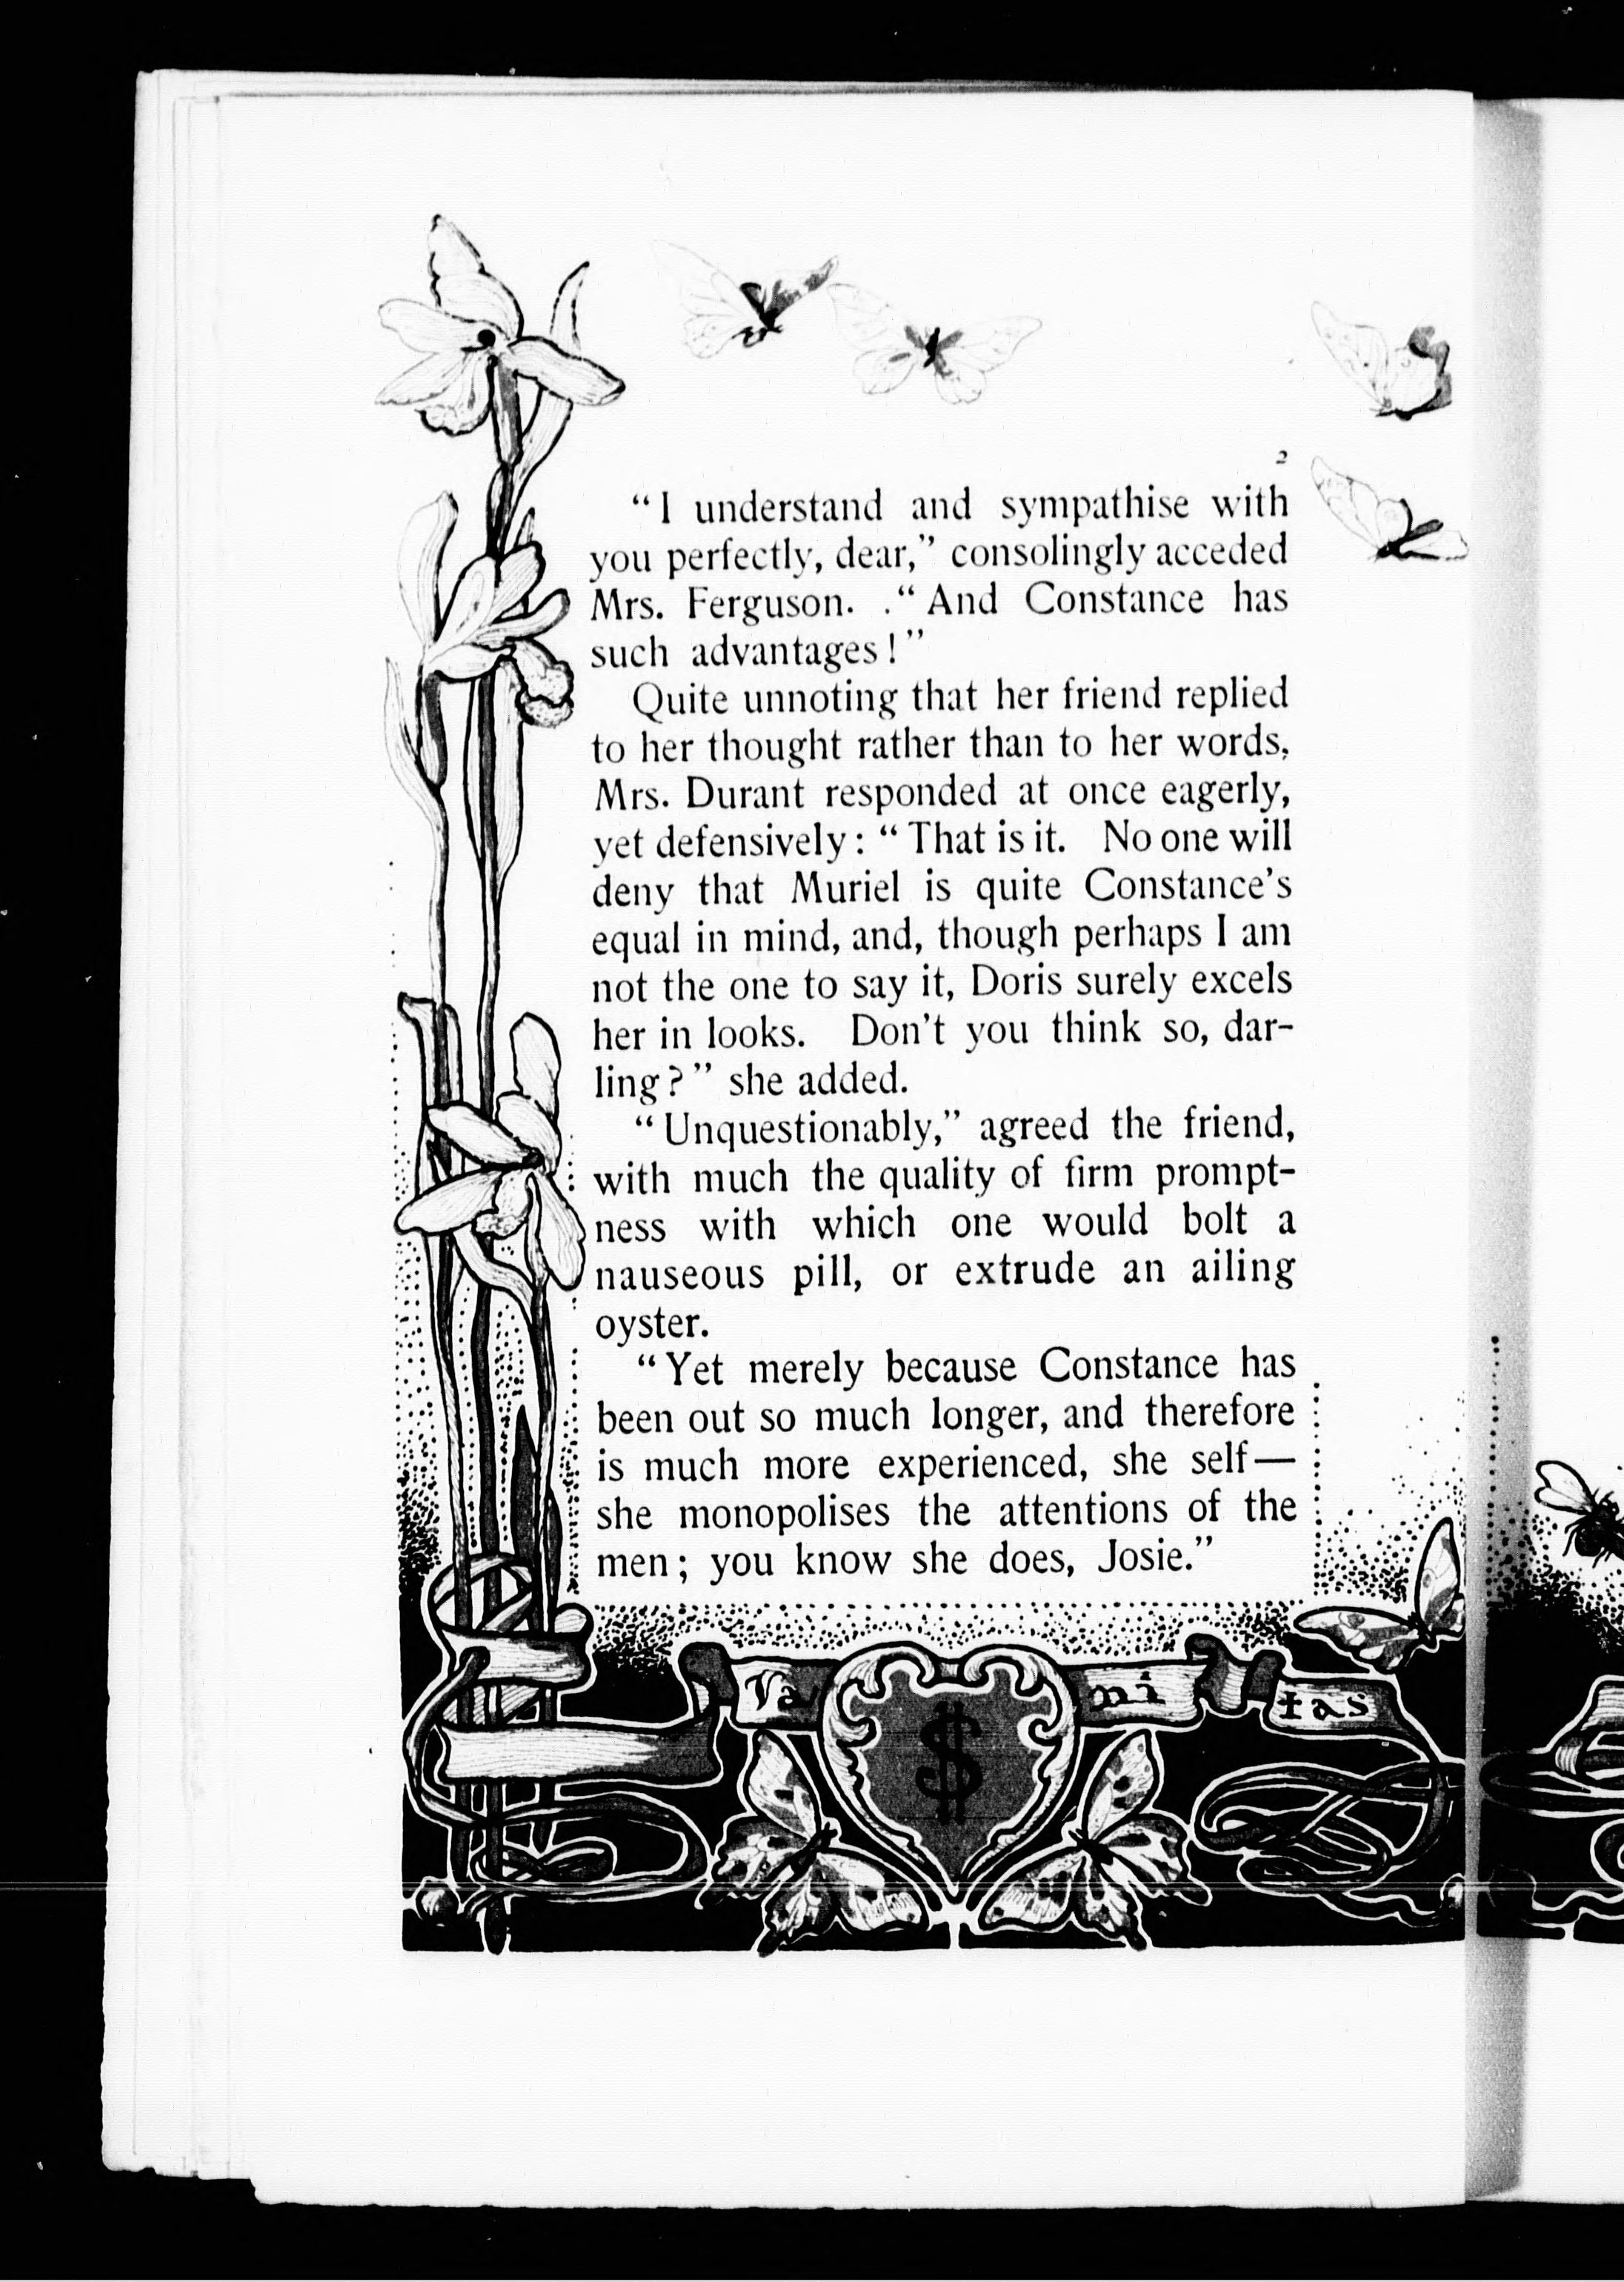 2
“I understand and sympathise with
you perfectly, dear,” consolingly acceded
Mrs. Ferguson. .“And Constance has
such advantages!”
Quite unnoting that her friend replied
to her thought rather than to her words,
Mrs. Durant responded at once eagerly,
yet defensively: “That is it. No one will
deny that Muriel is quite Constance’s
equal in mind, and, though perhaps I am
not the one to say it, Doris surely excels
her in looks. Don’t you think so, dar-
ling?” she added.
“Unquestionably,” agreed the friend,
with much the quality of firm prompt-
ness with which one would bolt a
nauseous pill, or extrude an ailing
oyster.
“Yet merely because Constance has
been out so much longer, and therefore
is much more experienced, she self—
she monopolises the attentions of the
men; you know she does, Josie.”
Va ni tas
$